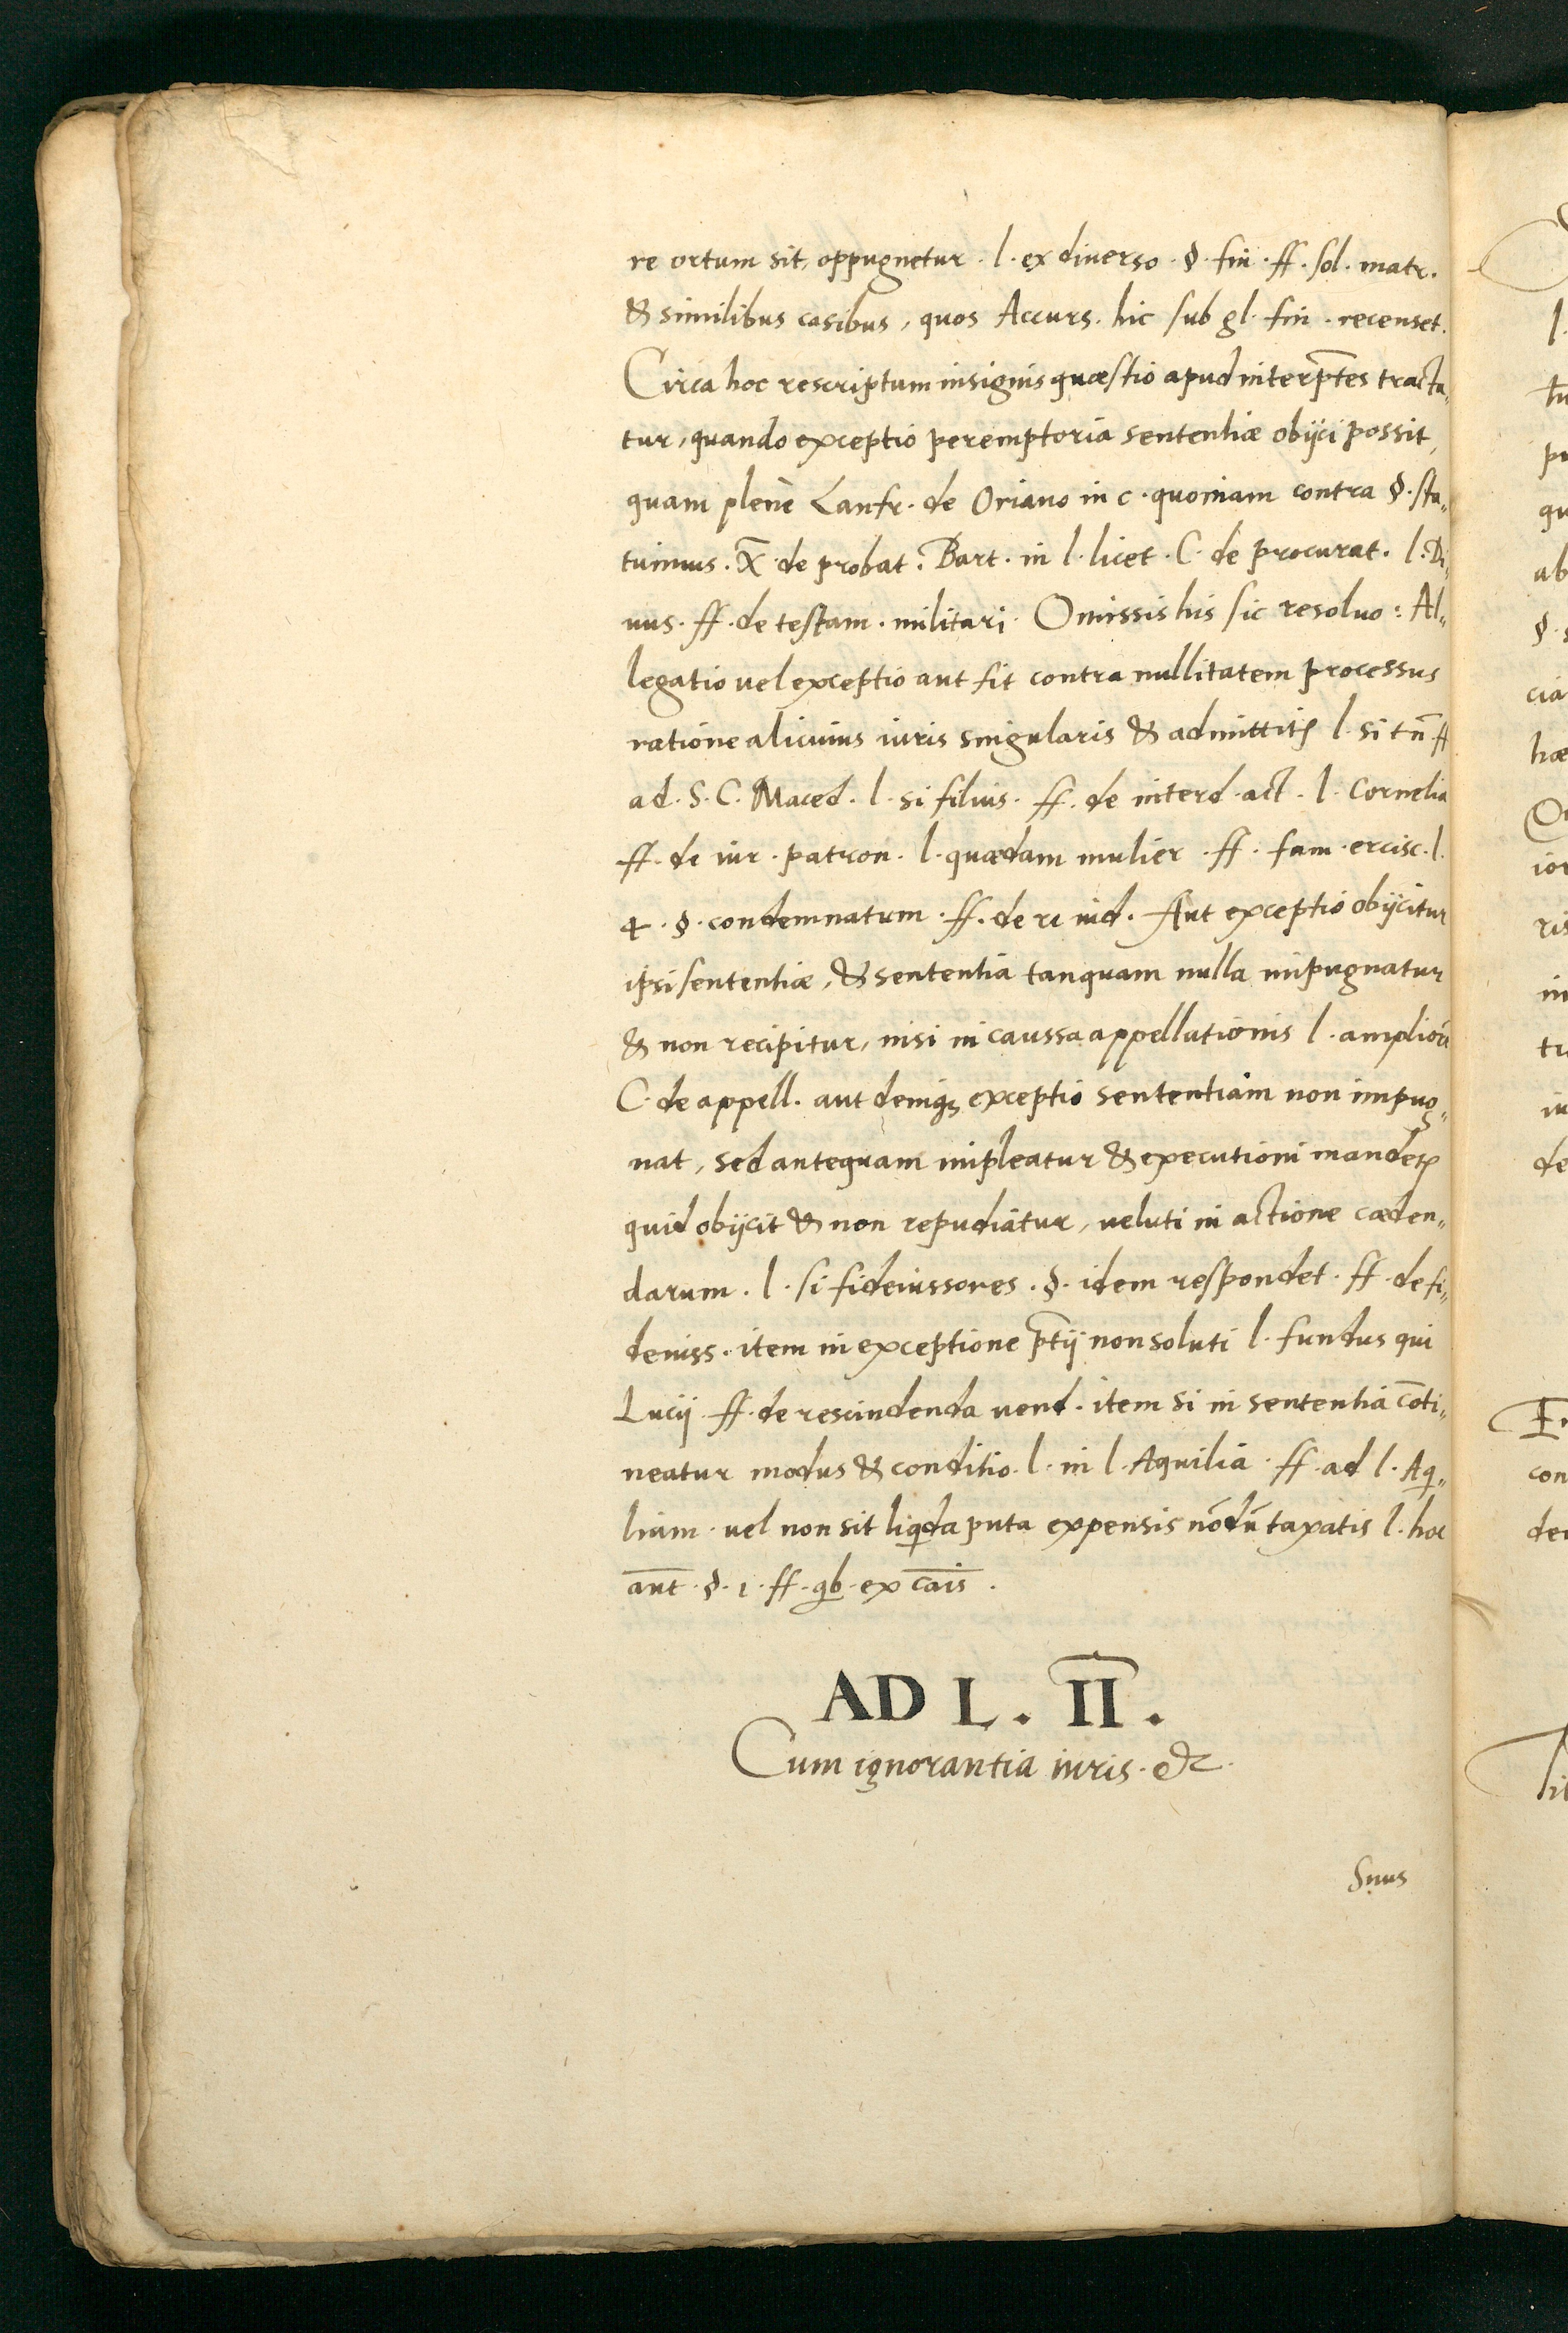 re ortum sit, oppugnetur. l. ex diuerso. §. fin. ff. sol. matr.
& similibus casibus, quos Accurs. hic sub gl. fin. recenset.
Circa hoc rescriptum insignis quæstio apud interp̄tes tracta„
tur, quando exceptio peremptoria sententiæ obijci possit,
quam plene Lanfr. de Oriano in c. quoniam contra §. sta„
tuimus. X̄ de probat. Bart. in l. licet. C. de procurat. l. Di„
uus. ff. de testam. militari. Omissis his sic resoluo: Al„
legatio uel exceptio aut fit contra nullitatem processus
ratione alicuius iuris singularis & admittitꝭ l. si tn̄ ff
ad. S. C. Maced. l. si filius. ff. de interd. act. l. Cornelia
ff. de iur. patron. l. quædam mulier. ff. fam. ercisc. l.
4. §. condemnatum. ff. de re iud. Aut exceptio obijcitur
ipsi sententiæ, & sententia tanquam nulla impugnatur
& non recipitur, nisi in caussa appellationis l. ampliorē
C. de appell. aut deniqꝫ exceptio sententiam non impug„
nat, sed antequam impleatur & executioni mandetꝭ
quid obijcit & non repudiatur, ueluti in actione cæden„
darum. l. si fideiussores. §. idem respondet. ff. de fi„
deiuss. item in exceptione p̄tij non soluti l. fundus qui
Lucij. ff. de rescindenda uend. item si in sententia cōti„
neatur modus & conditio. l. in l. Aquilia. ff. ad l. Aq„
liam. uel non sit liqda puta expensis nōdū taxatis l. hoc
aūt. §. 1. ff. qb. ex cāis.
AD L. II.
Cum ignorantia iuris. &c.
Suus